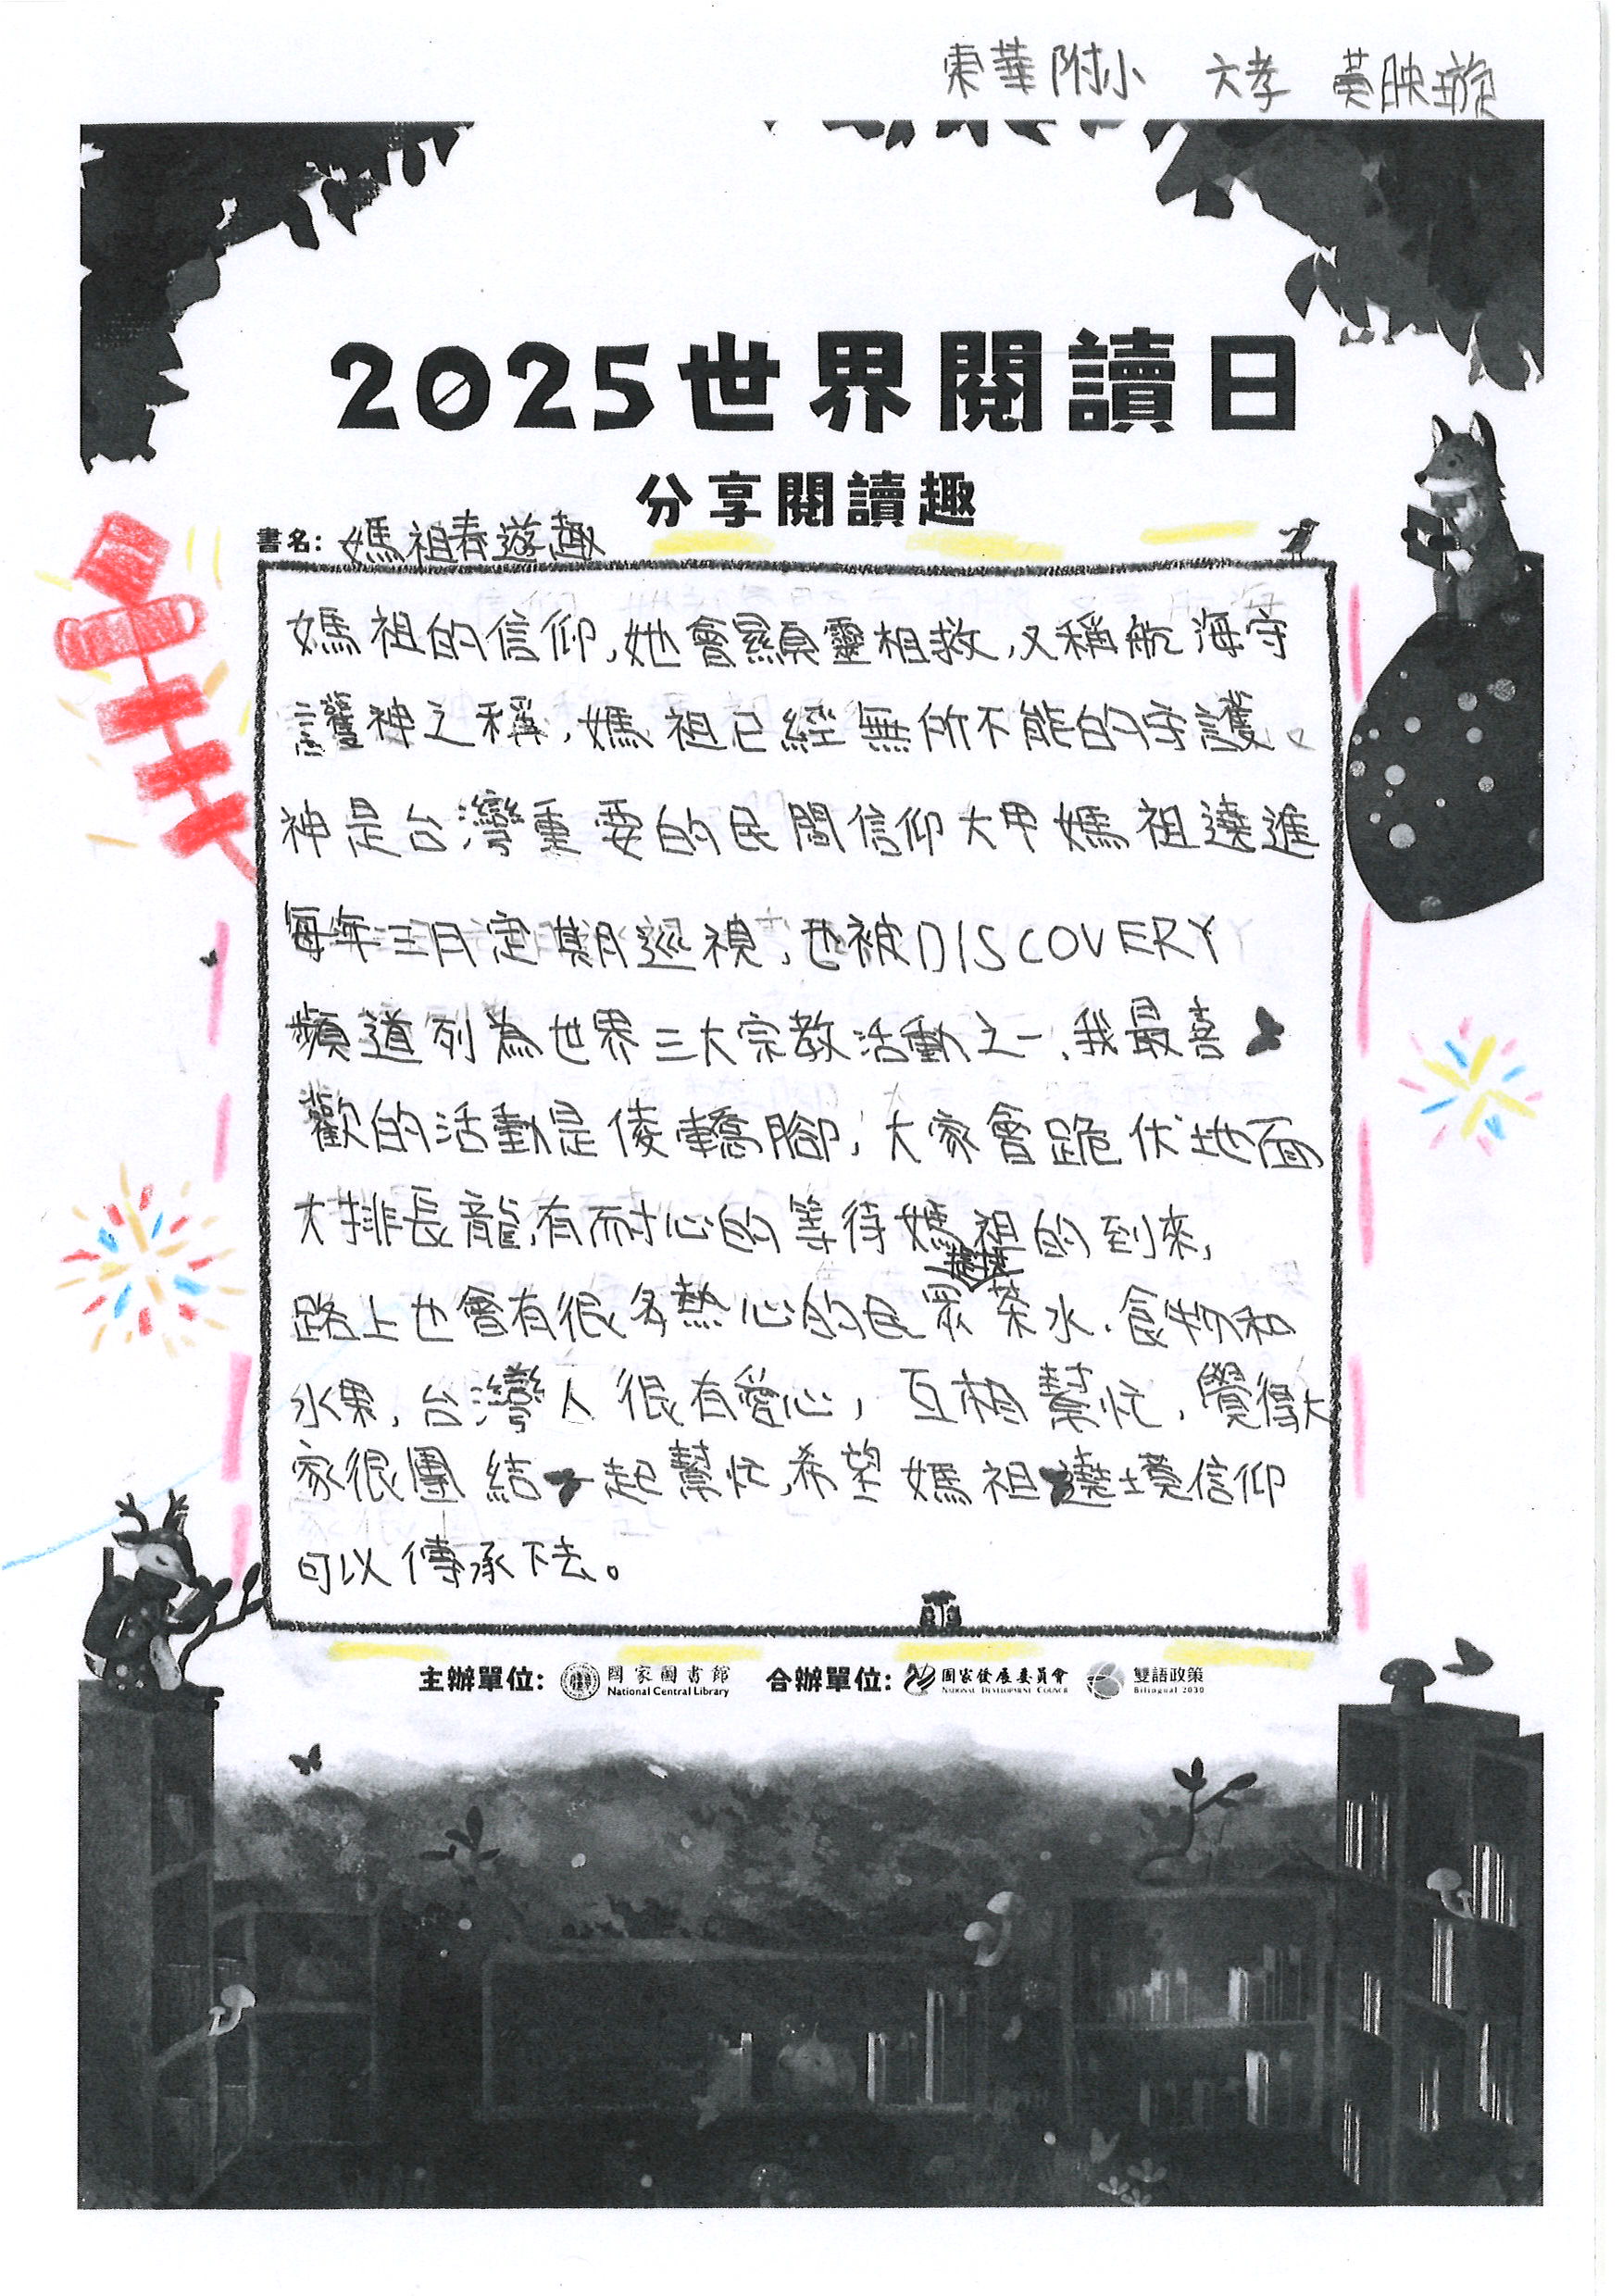 東華附小 六孝 黃映璇
2025世界閱讀日
分享閱讀趣
書名: 媽祖春遊趣
媽祖的信仰,她會顯靈相救,又稱航海守
護神之稱,媽祖已經無所不能的守護。
神是台灣重要的民間信仰大甲媽祖遶進
每年三月定期巡視,也被DISCOVERY
頻道列為世界三大宗教活動之一,我最喜
歡的活動是倰轎腳,大家會跪伏地面
大排長龍,有耐心的等待媽祖的到來,
路上也會有很多熱心的民眾茶水、食物和
水果,台灣人很有愛心,互相幫忙,覺得大
家很團結一起幫忙,希望媽祖遶境信仰
可以傳承下去。
主辦單位: 國家圖書館 National Central Library 合辦單位: 國家發展委員會 NATIONAL DEVELOPMENT COUNCIL 雙語政策 Bilingual 2030